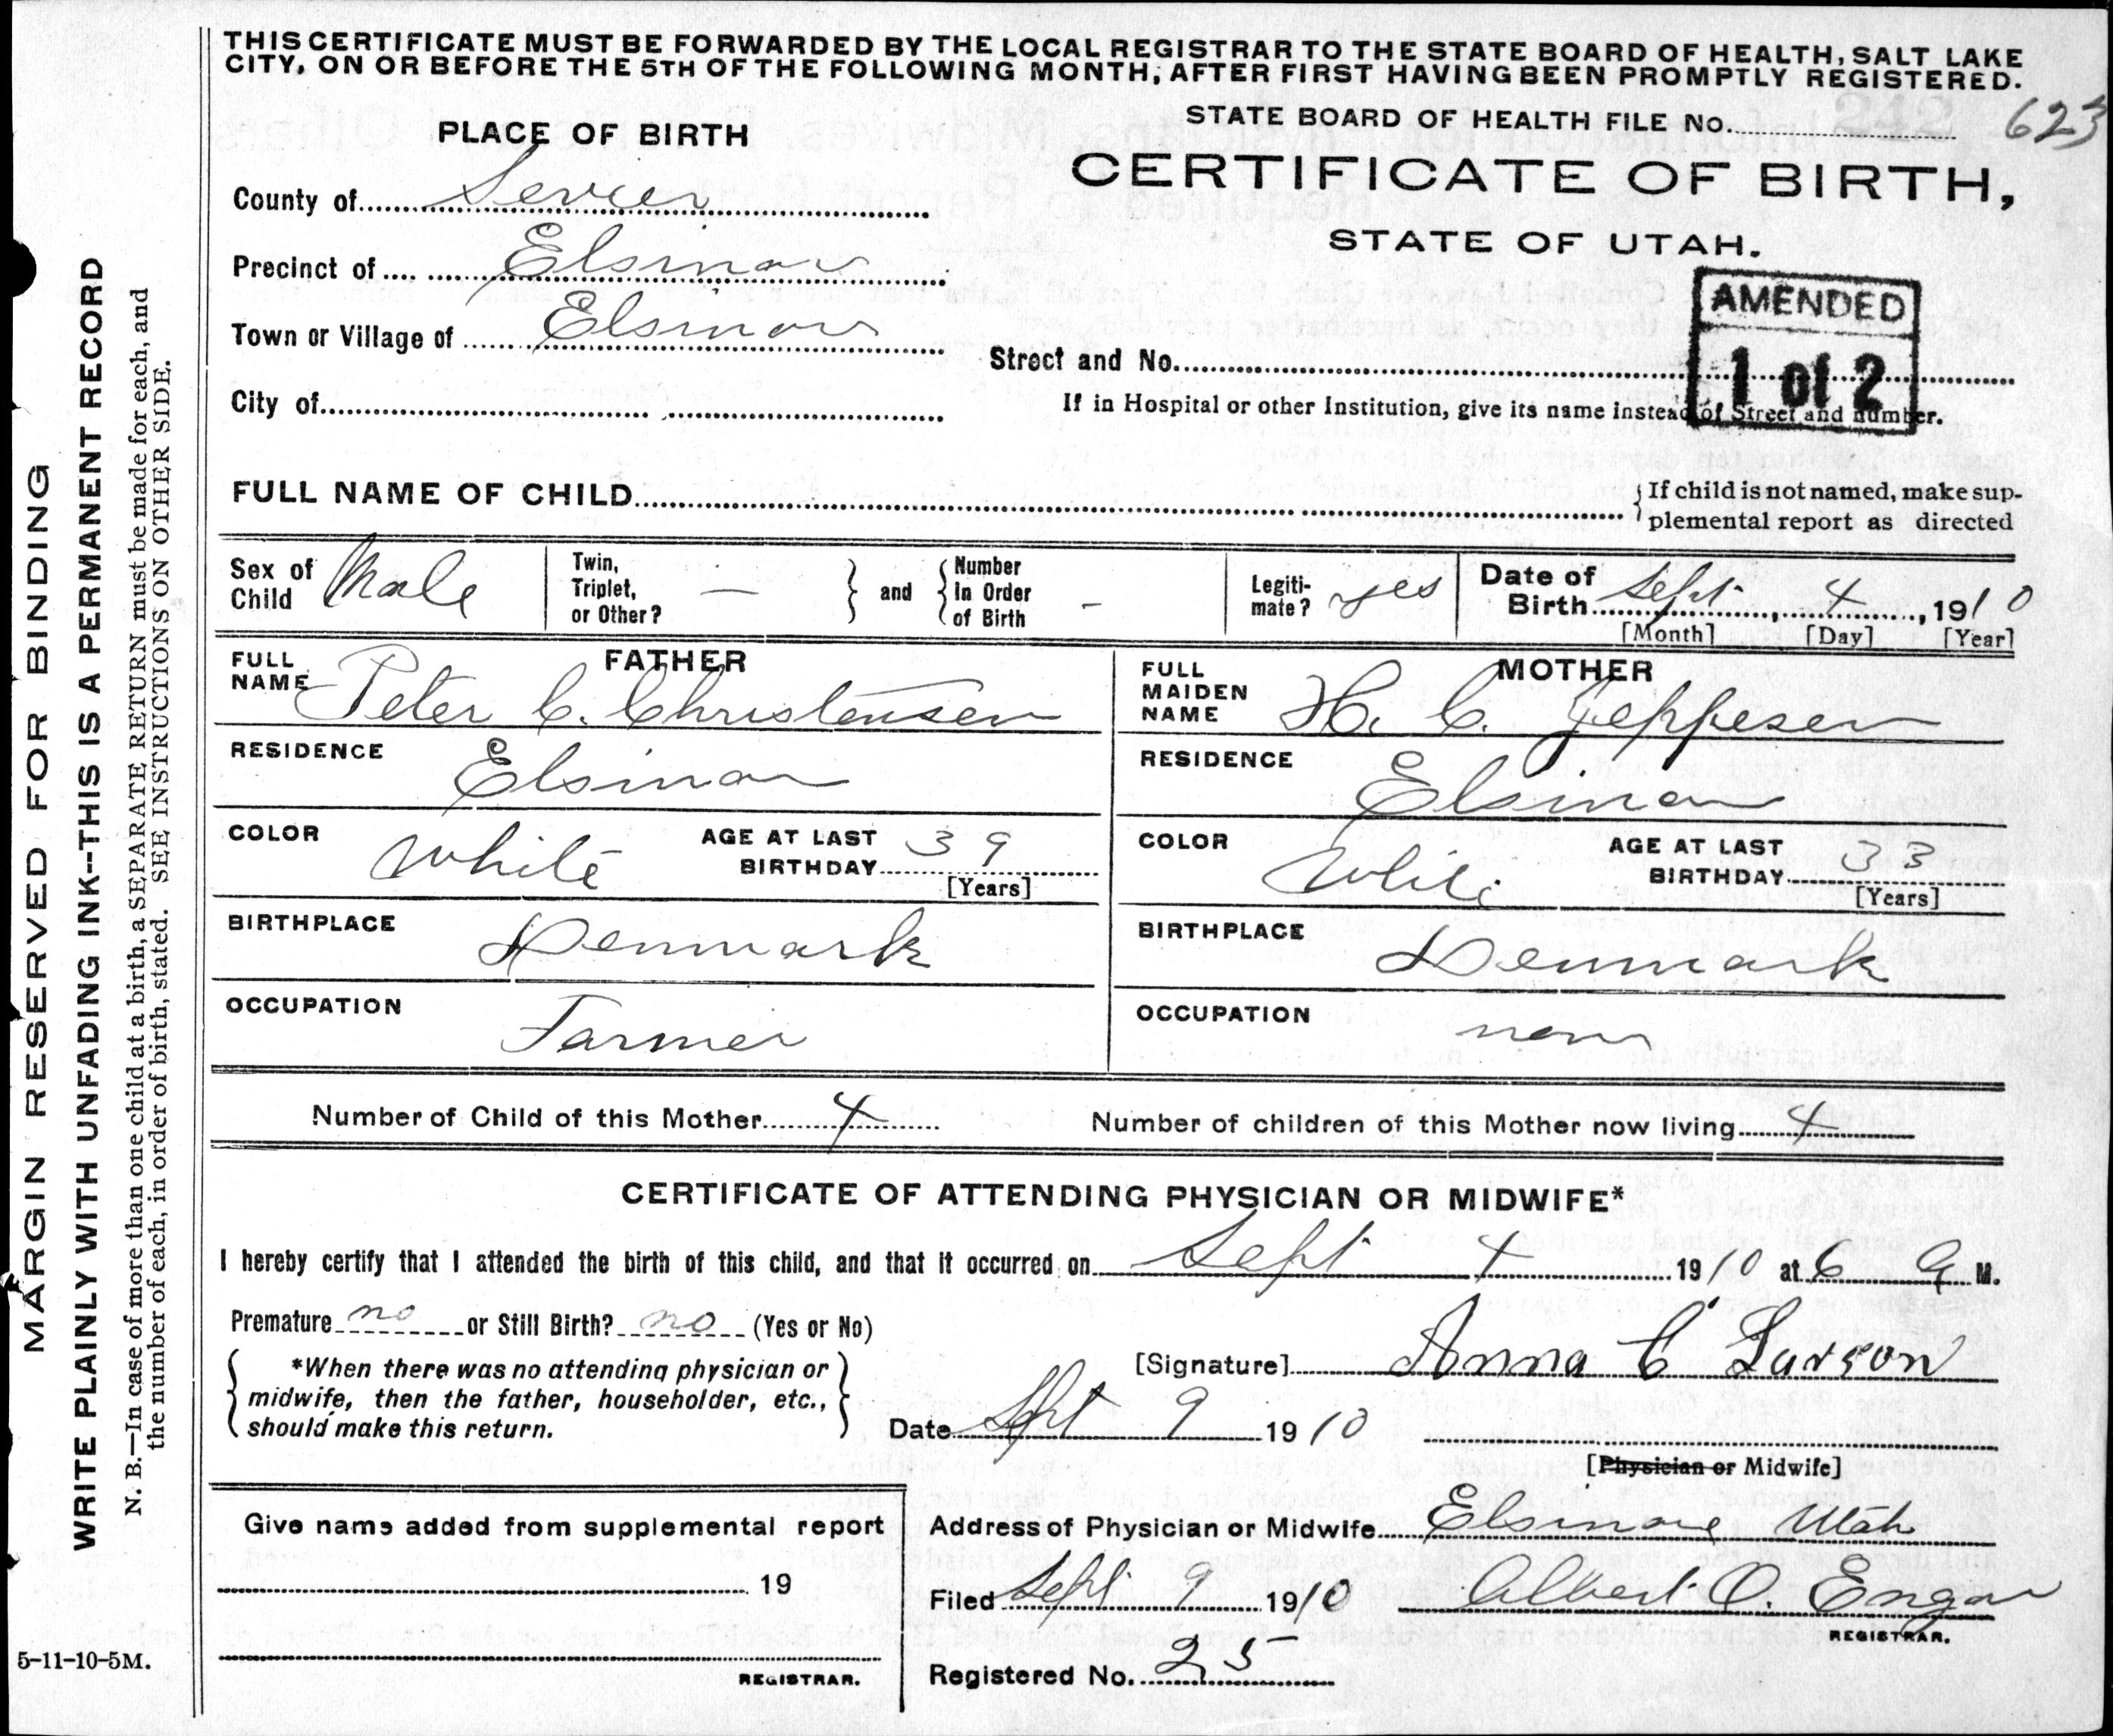 THIS CERTIFICATE MUST BE FORWARDED BY THE LOCAL REGISTRAR TO THE STATE BOARD OF HEALTH, SALT LAKE
CITY, ON OR BEFORE THE 5TH OF THE FOLLOWING MONTH, AFTER FIRST HAVING BEEN PROMPTLY REGISTERED.
STATE BOARD OF HEALTH FILE No. 242 623
PLACE OF BIRTH
CERTIFICATE OF BIRTH,
STATE OF UTAH.
County of Sevier
Precinct of Elsinore
Town or Village of Elsinore
City of
AMENDED
1 of 2
Street and No.
If in Hospital or other Institution, give its name instead of Street and number.
FULL NAME OF CHILD
If child is not named, make sup-
plemental report as directed
Sex of Child Male
Twin, Triplet, or Other? —
and
Number in Order of Birth -
Legiti-mate? yes
Date of Birth Sept 4, 1910
[Month] [Day] [Year]
FATHER
FULL NAME Peter C. Christensen
RESIDENCE Elsinore
COLOR White AGE AT LAST BIRTHDAY 39
[Years]
BIRTHPLACE Denmark
OCCUPATION Farmer
MOTHER
FULL MAIDEN NAME H. C. Jeppesen
RESIDENCE Elsinore
COLOR White AGE AT LAST BIRTHDAY 33
[Years]
BIRTHPLACE Denmark
OCCUPATION none
Number of Child of this Mother 4 Number of children of this Mother now living 4
CERTIFICATE OF ATTENDING PHYSICIAN OR MIDWIFE*
I hereby certify that I attended the birth of this child, and that it occurred on Sept 4 1910 at 6 a M.
Premature no or Still Birth? no (Yes or No)
*When there was no attending physician or
midwife, then the father, householder, etc.,
should make this return.
[Signature] Anna C Larson
Date Spt 9 1910
[Physician or Midwife]
Give name added from supplemental report
19
REGISTRAR.
Address of Physician or Midwife Elsinore Utah
Filed Sept 9 1910 Albert O. Engar
REGISTRAR.
Registered No. 25
MARGIN RESERVED FOR BINDING
WRITE PLAINLY WITH UNFADING INK--THIS IS A PERMANENT RECORD
N. B.—In case of more than one child at a birth, a SEPARATE RETURN must be made for each, and
the number of each, in order of birth, stated. SEE INSTRUCTIONS ON OTHER SIDE.
5-11-10-5M.